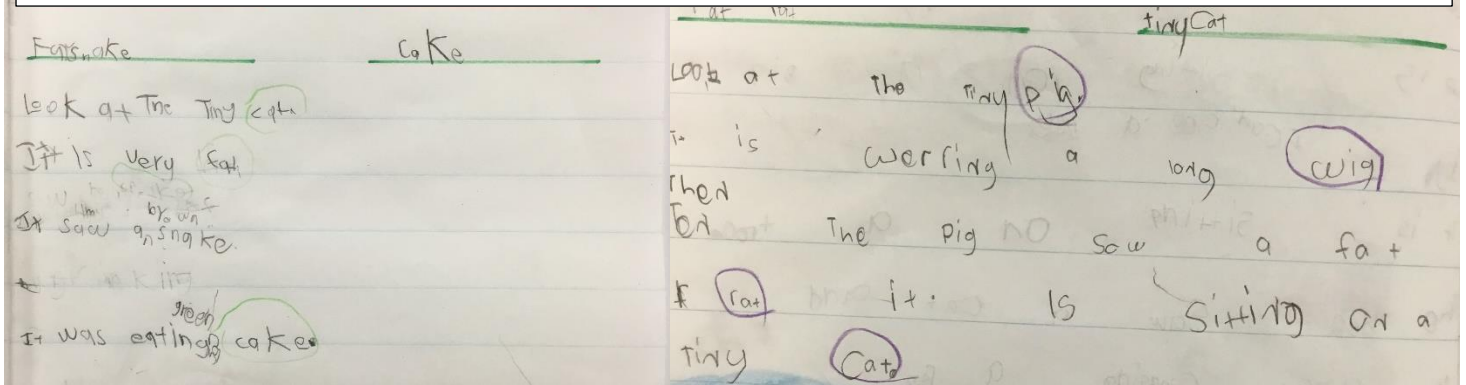 snake cake
Look at The Tiny cat.
It Is very fat.
brown
It saw a snake.
green
It was eating cake.
tiny Cat
Look at The Tiny Pig.
it is werring a long wig
Then
Ten The pig saw a fat
rat it. Is Sitting On a
Tiny Cat.